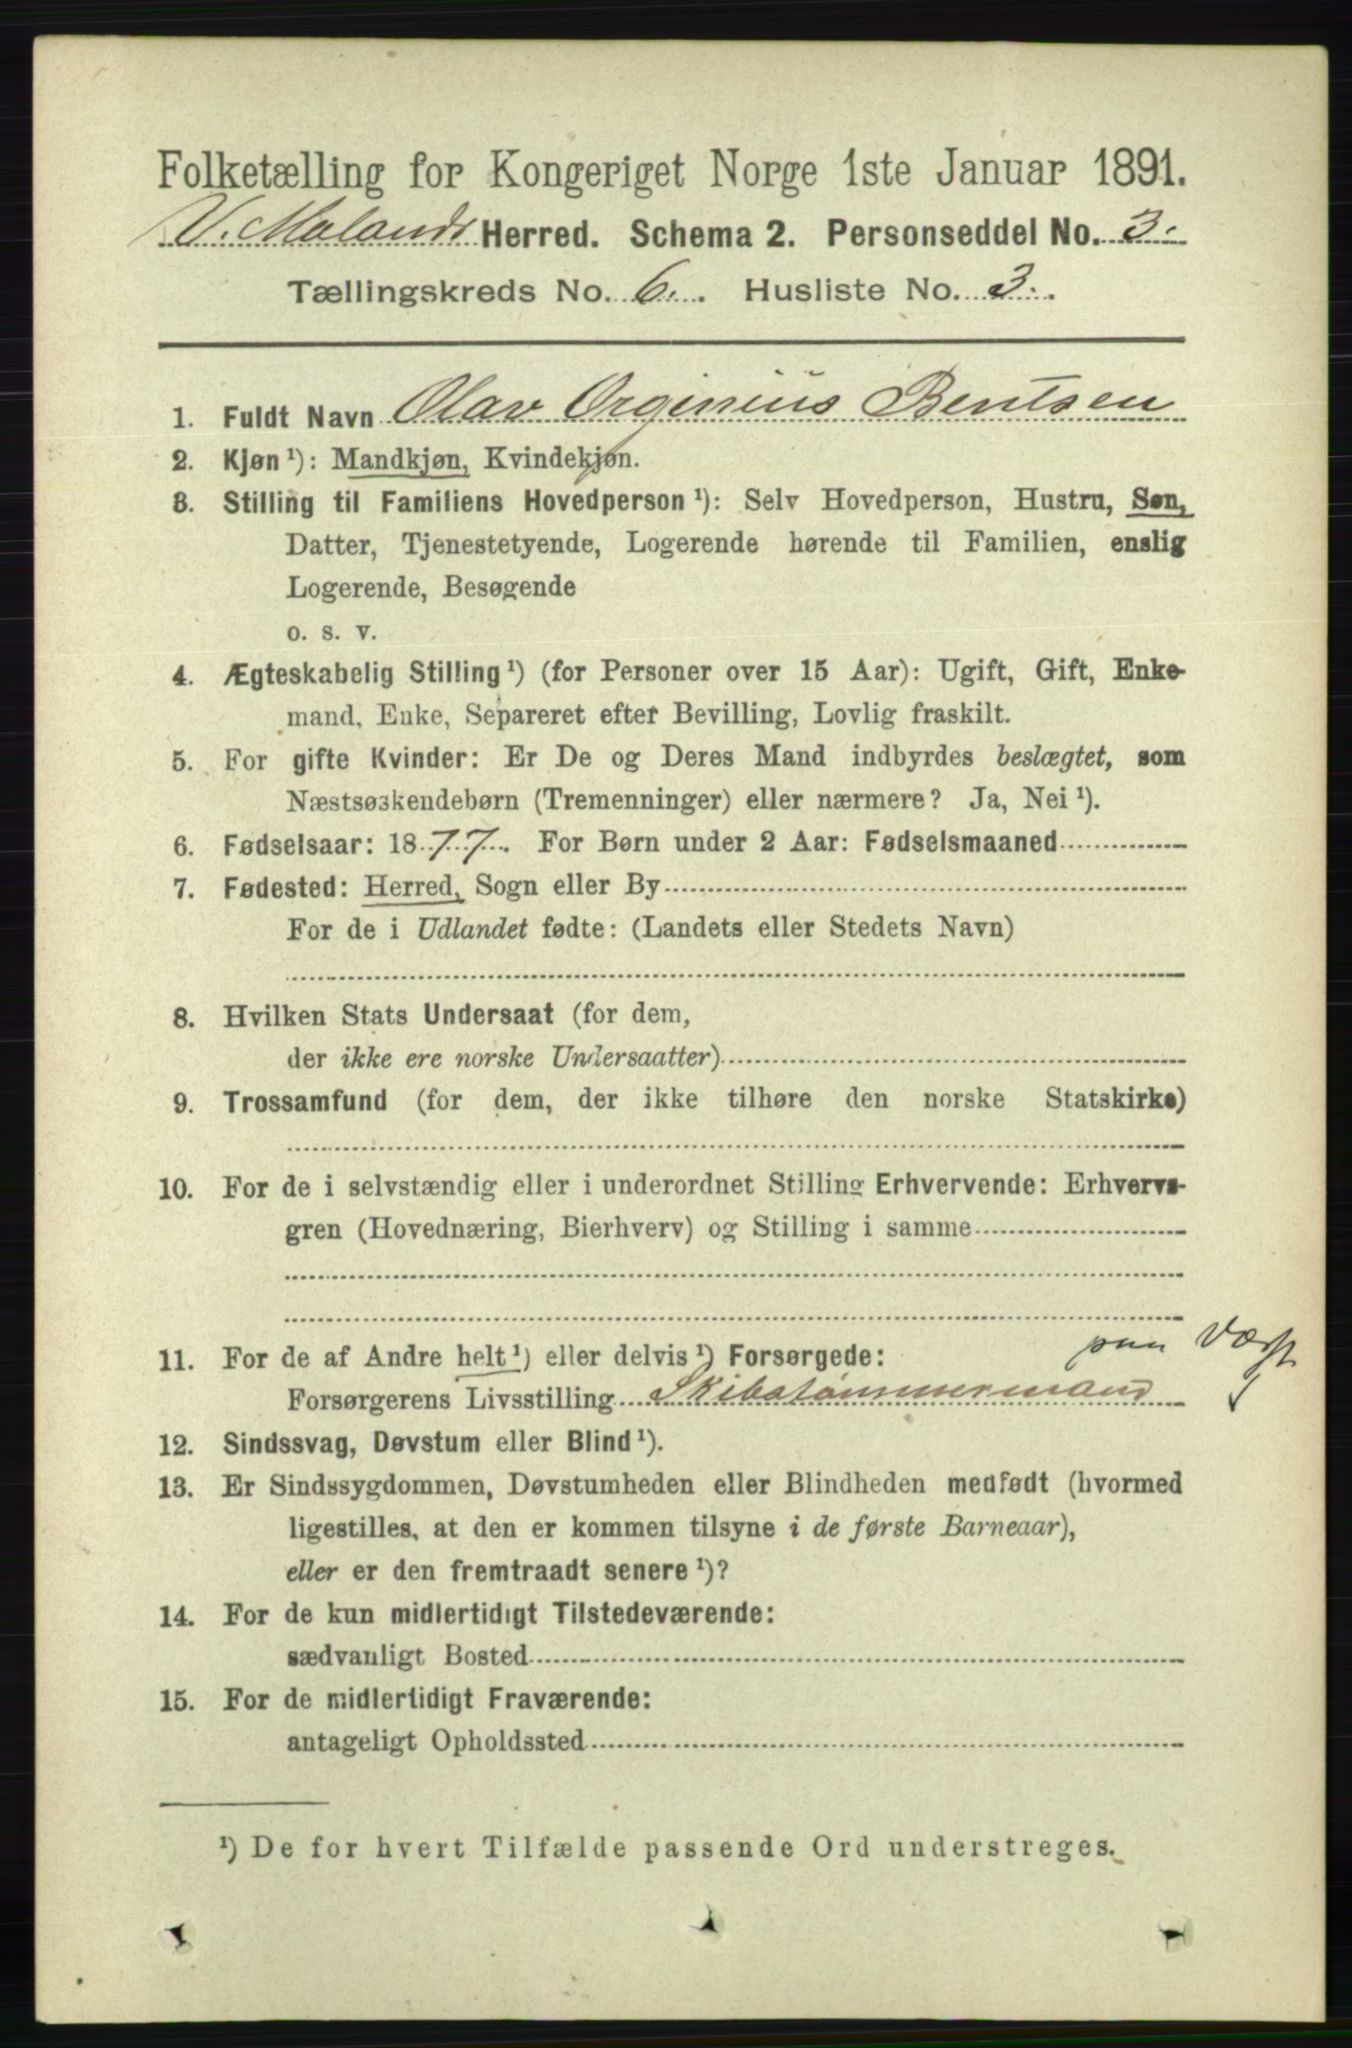 Folketælling for Kongeriget Norge 1ste Januar 1891.
V. Molands Herred. Schema 2. Personseddel No. 3.
Tællingskreds No. 6. Husliste No. 3.
1. Fuldt Navn Olav Orginius Bentsen
2. Kjøn¹): Mandkjøn, Kvindekjøn.
3. Stilling til Familiens Hovedperson¹): Selv Hovedperson, Hustru, Søn,
Datter, Tjenestetyende, Logerende hørende til Familien, enslig
Logerende, Besøgende
o. s. v.
4. Ægteskabelig Stilling¹) (for Personer over 15 Aar): Ugift, Gift, Enke-
mand, Enke, Separeret efter Bevilling, Lovlig fraskilt.
5. For gifte Kvinder: Er De og Deres Mand indbyrdes beslægtet, som
Næstsøskendebørn (Tremenninger) eller nærmere? Ja, Nei¹).
6. Fødselsaar: 1877. For Børn under 2 Aar: Fødselsmaaned
7. Fødested: Herred, Sogn eller By
For de i Udlandet fødte: (Landets eller Stedets Navn)
8. Hvilken Stats Undersaat (for dem,
der ikke ere norske Undersaatter)
9. Trossamfund (for dem, der ikke tilhøre den norske Statskirke)
10. For de i selvstændig eller i underordnet Stilling Erhvervende: Erhvervs-
gren (Hovednæring, Bierhverv) og Stilling i samme
11. For de af Andre helt¹) eller delvis¹) Forsørgede:
paa Værft
Forsørgerens Livsstilling Skibstømmermand
12. Sindssvag, Døvstum eller Blind¹).
13. Er Sindssygdommen, Døvstumheden eller Blindheden medfødt (hvormed
ligestilles, at den er kommen tilsyne i de første Barneaar),
eller er den fremtraadt senere¹)?
14. For de kun midlertidigt Tilstedeværende:
sædvanligt Bosted
15. For de midlertidigt Fraværende:
antageligt Opholdssted
¹) De for hvert Tilfælde passende Ord understreges.